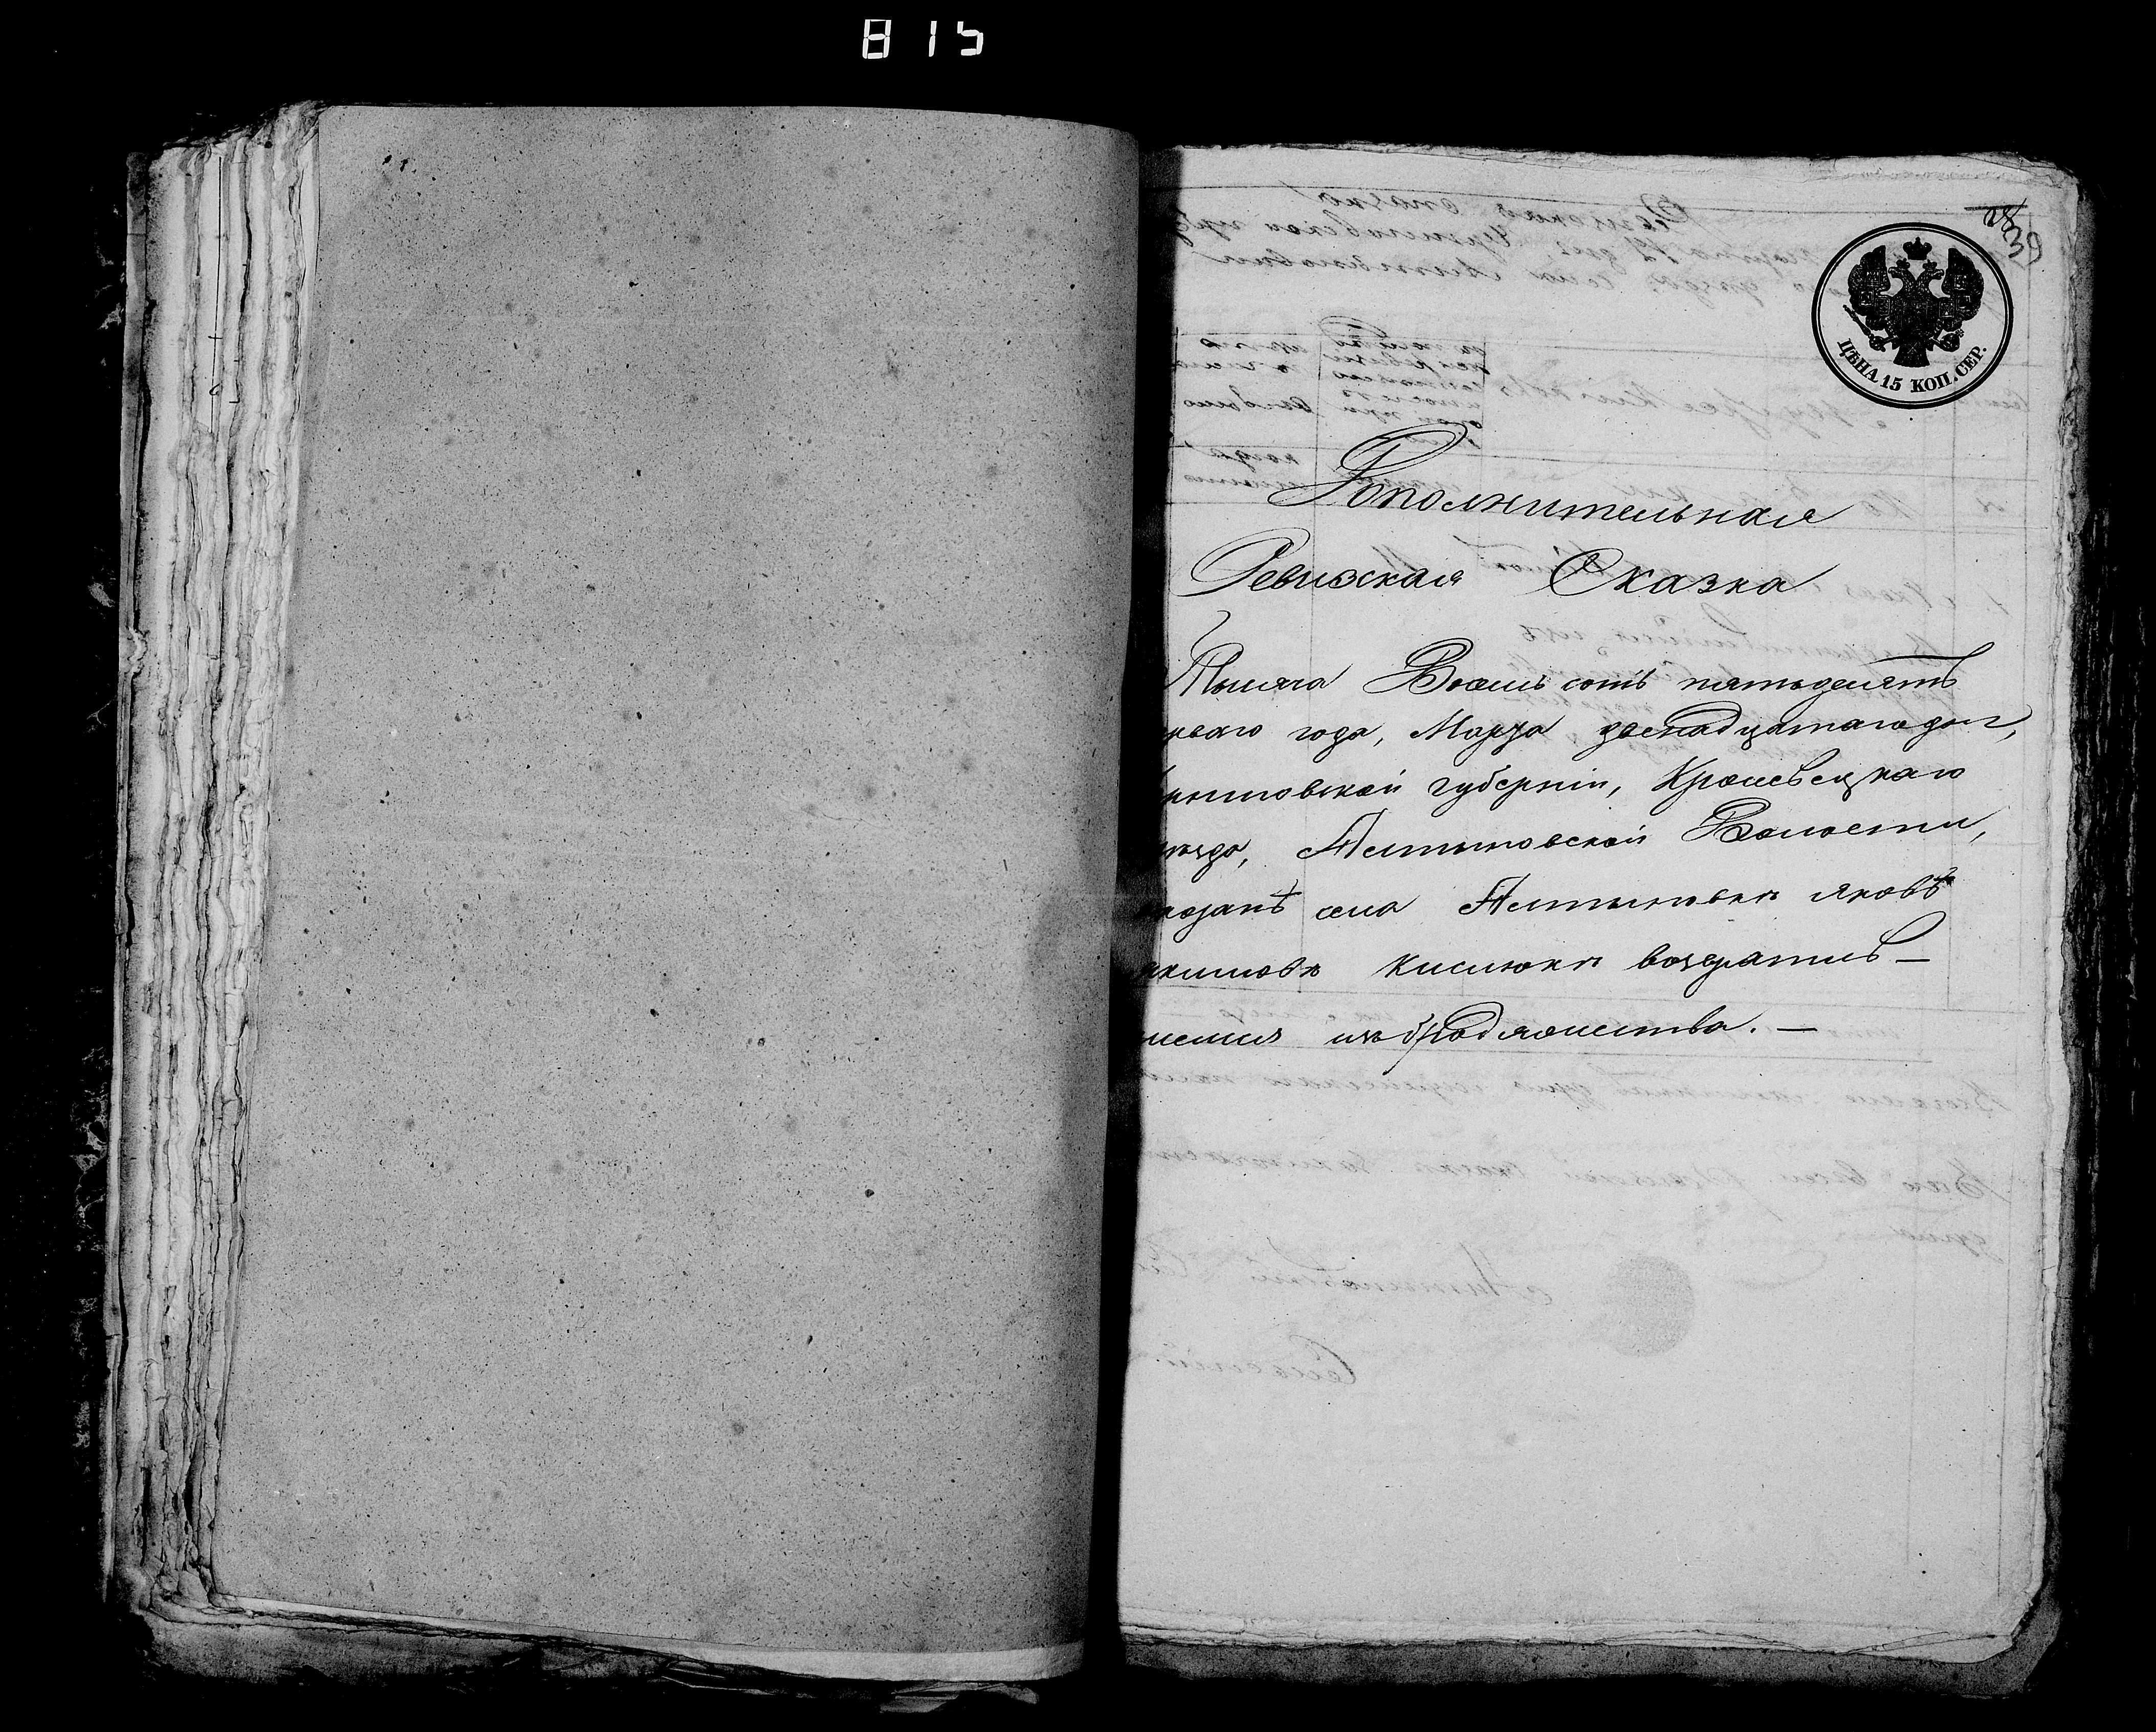 815
39
ЦѢНА 15 КОП. СЕР.
Дополнительная
Ревизская Сказка
Тысяча Восемь сотъ пятьдесятъ
рваго года, Марта двенадцатаго дня,
ниговской губерніи, Кролевецкаго
езда, Алтыновской Волости,
козакѣ села Алтыновки Яковѣ
кимовѣ Кислюкѣ возвратив-
шемся изъ бродяжества. —